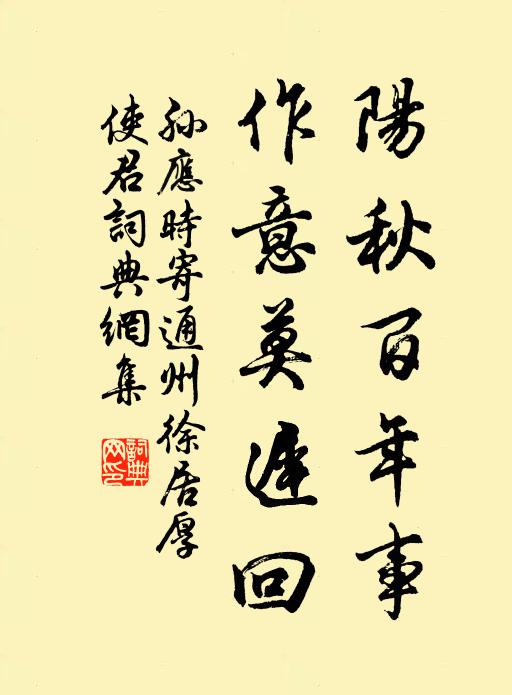 陽秋百年事
作意莫遲回
孫應時寄通州徐居厚
使君詞典網集
詞典網印